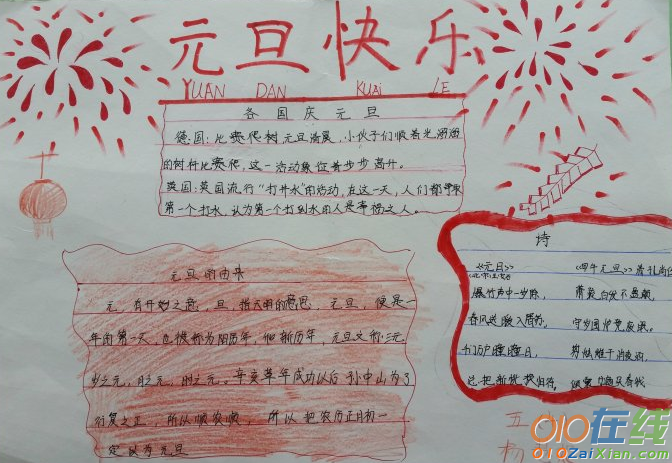 元旦快乐
YUAN DAN KUAi LE
各国庆元旦
德国:比赛爬树元旦清晨,小伙子们顺着光溜溜
的树杆比赛爬,这一活动象征着步步高升。
英国:英国流行“打井水”的活动,在这一天,人们都争取
第一个打水,认为第一个打到水的人是幸福之人。
元旦的由来
元,有开始之意,旦,指天明的意思,元旦,便是一
年的第一天,也被称为阳历年,
元旦又称三元
岁之元,月之元,时之元。辛亥革年成功以后 孙中山为了
行夏之正,所以顺农
,所以 把农历正月初一
定
为元旦
诗
《元日》
爆竹声中一岁除,
春风送暖入屠苏,
千门万户曈曈日,
总把新桃换旧符,
元旦》
萧疏白发不盈颠,
守岁围炉竟废眠。
剪烛
五
杨
010在线
010ZaiXian.com